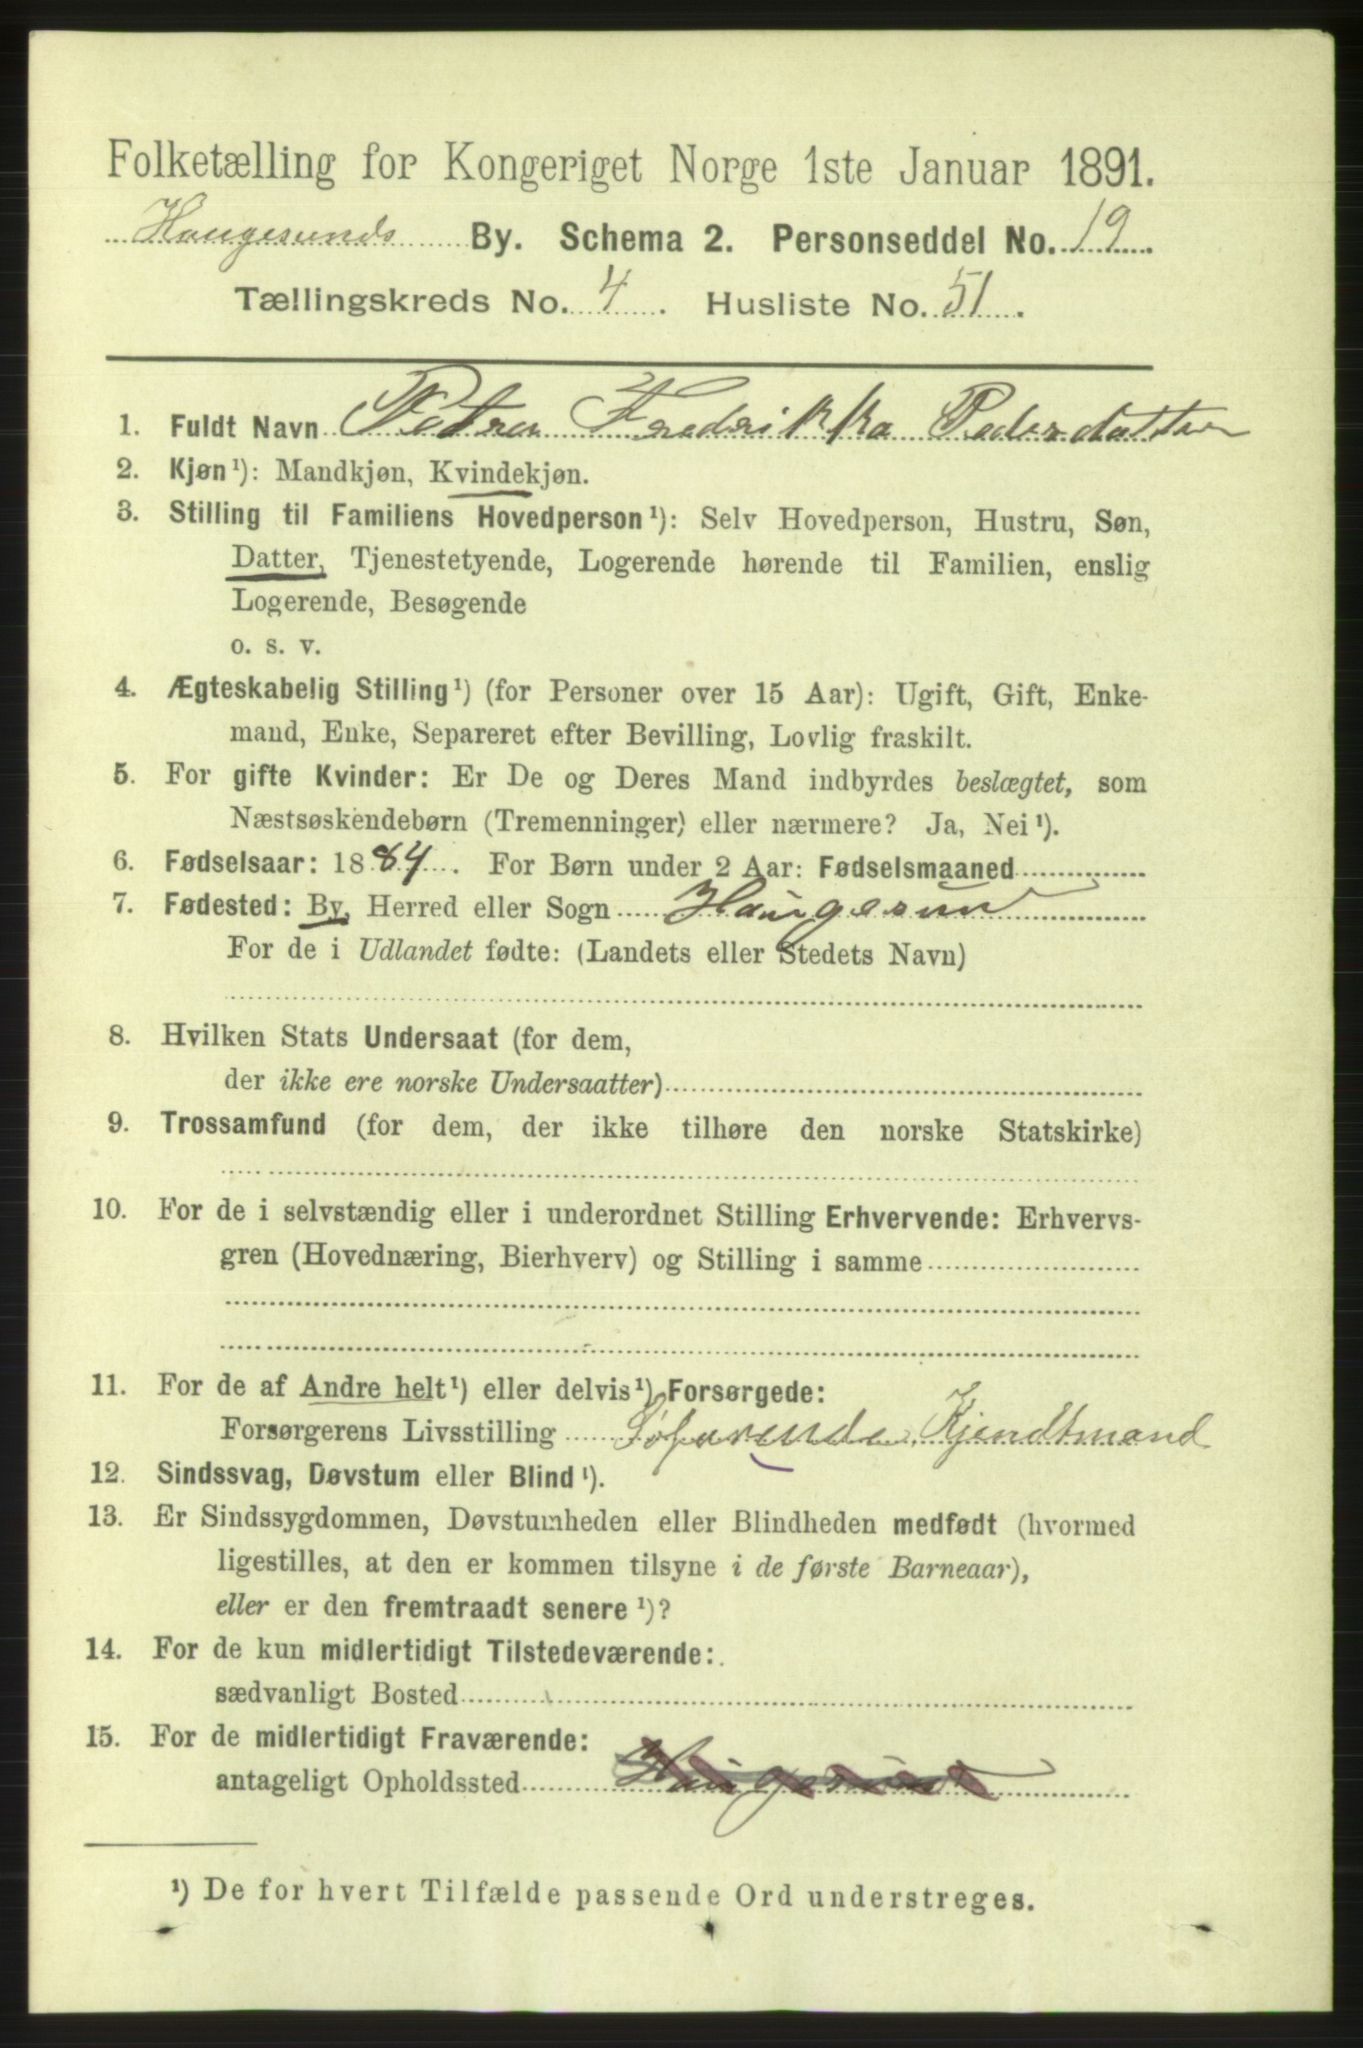 Folketælling for Kongeriget Norge 1ste Januar 1891.
Haugesunds By. Schema 2. Personseddel No. 19.
Tællingskreds No. 4. Husliste No. 51.
1. Fuldt Navn Petra Fredrikka Pedersdatter
2. Kjøn ¹): Mandkjøn, Kvindekjøn.
3. Stilling til Familiens Hovedperson ¹): Selv Hovedperson, Hustru, Søn,
Datter, Tjenestetyende, Logerende hørende til Familien, enslig
Logerende, Besøgende
o. s. v.
4. Ægteskabelig Stilling ¹) (for Personer over 15 Aar): Ugift, Gift, Enke-
mand, Enke, Separeret efter Bevilling, Lovlig fraskilt.
5. For gifte Kvinder: Er De og Deres Mand indbyrdes beslægtet, som
Næstsøskendebørn (Tremenninger) eller nærmere? Ja, Nei ¹).
6. Fødselsaar: 1884. For Børn under 2 Aar: Fødselsmaaned
7. Fødested: By, Herred eller Sogn Haugesun
For de i Udlandet fødte: (Landets eller Stedets Navn)
8. Hvilken Stats Undersaat (for dem,
der ikke ere norske Undersaatter)
9. Trossamfund (for dem, der ikke tilhøre den norske Statskirke)
10. For de i selvstændig eller i underordnet Stilling Erhvervende: Erhvervs-
gren (Hovednæring, Bierhverv) og Stilling i samme
11. For de af Andre helt ¹) eller delvis ¹) Forsørgede:
Forsørgerens Livsstilling Søfarende, Kjendtmand
12. Sindssvag, Døvstum eller Blind ¹).
13. Er Sindssygdommen, Døvstumheden eller Blindheden medfødt (hvormed
ligestilles, at den er kommen tilsyne i de første Barneaar),
eller er den fremtraadt senere ¹)?
14. For de kun midlertidigt Tilstedeværende:
sædvanligt Bosted
15. For de midlertidigt Fraværende:
antageligt Opholdssted Haugesund
¹) De for hvert Tilfælde passende Ord understreges.